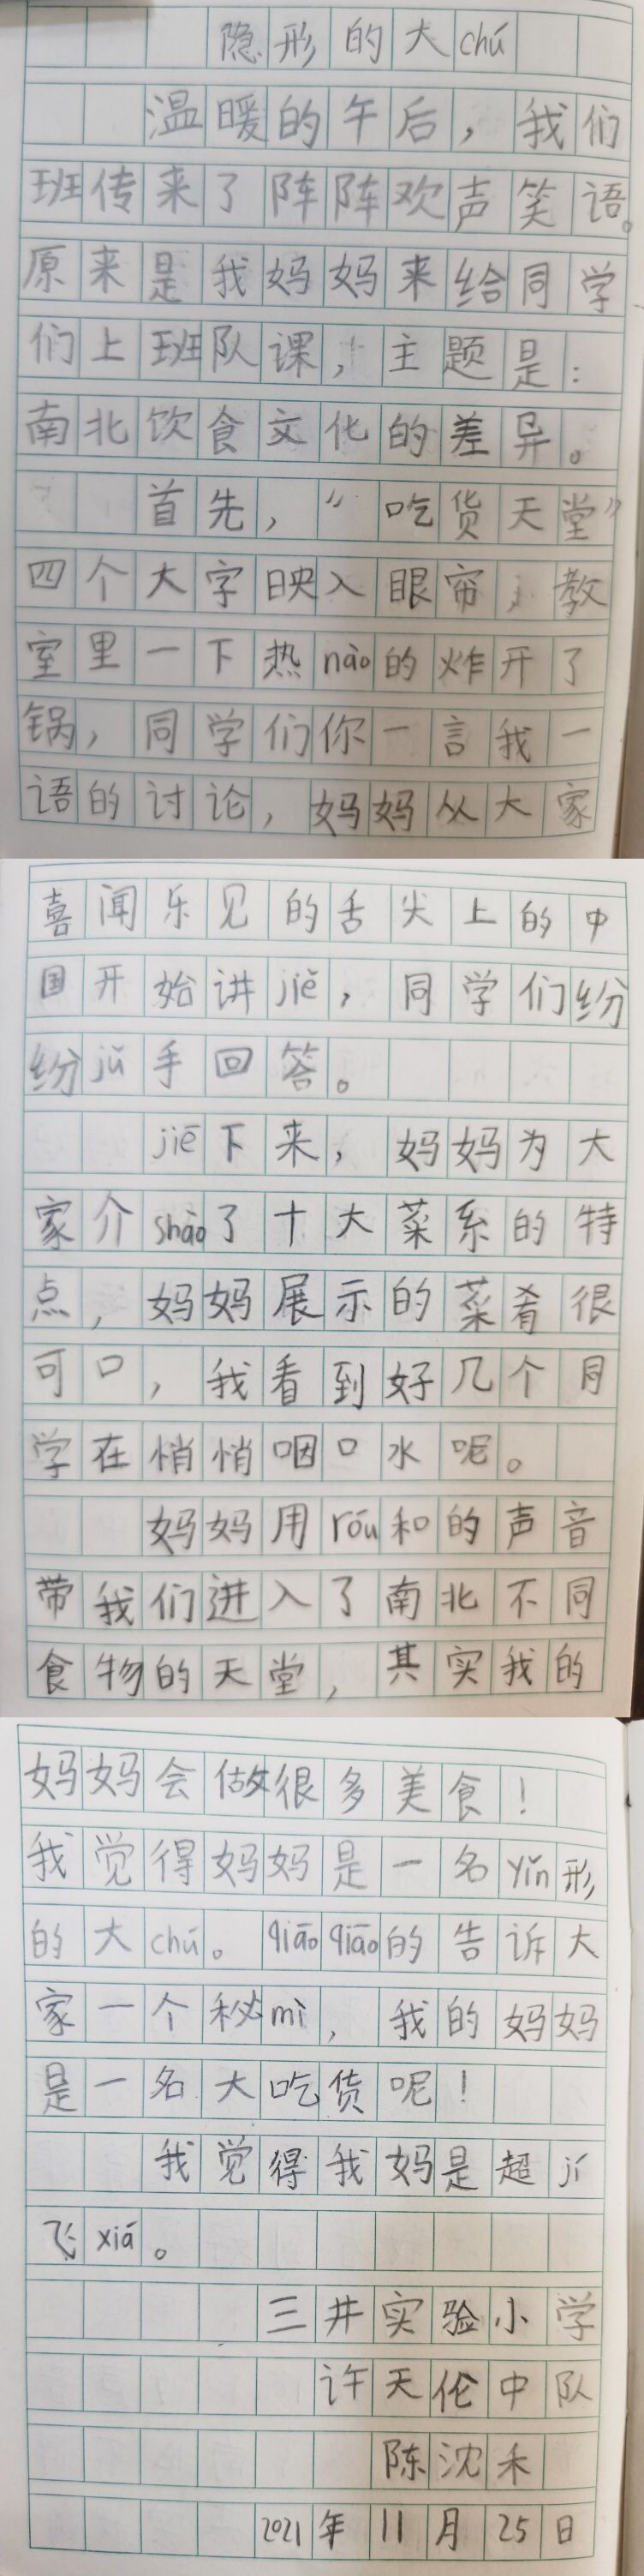 隐形的大chú
温暖的午后，我们
班传来了阵阵欢声笑语。
原来是我妈妈来给同学
们上班队课，主题是：
南北饮食文化的差异。
首先，“吃货天堂”
四个大字映入眼帘，教
室里一下热nào的炸开了
锅，同学们你一言我一
语的讨论，妈妈从大家
喜闻乐见的舌尖上的中
国开始讲jiě，同学们纷
纷jǔ手回答。
jiē下来，妈妈为大
家介shào了十大菜系的特
点，妈妈展示的菜肴很
可口，我看到好几个同
学在悄悄咽口水呢。
妈妈用róu和的声音
带我们进入了南北不同
食物的天堂，其实我的
妈妈会做很多美食！
我觉得妈妈是一名yǐn形
的大chú。qiāoqiāo的告诉大
家一个秘mì，我的妈妈
是一名大吃货呢！
我觉得我妈是超jí
飞xiá。
三井实验小学
许天伦中队
陈沈禾
2021年11月25日